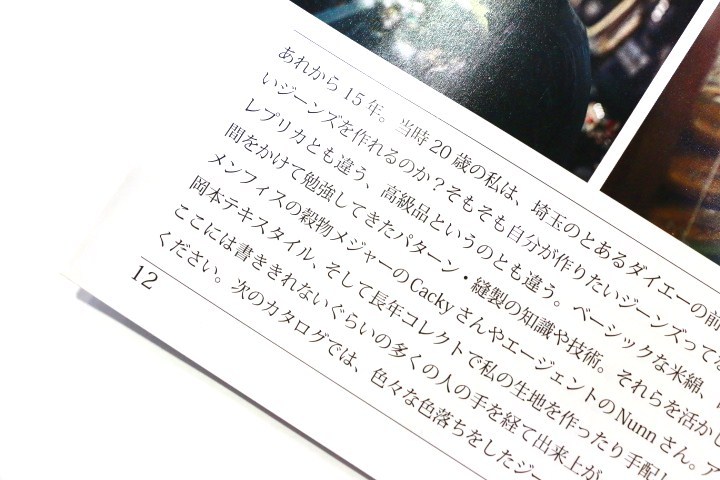 あれから 15 年。当時 20 歳の私は、埼玉のとあるダイエーの前
いジーンズを作れるのか？そもそも自分が作りたいジーンズってな
レプリカとも違う、高級品というのとも違う。ベーシックな米綿、
間をかけて勉強してきたパターン・縫製の知識や技術。それらを活かし
メンフィスの穀物メジャーのCackyさんやエージェントのNunnさん。ア
岡本テキスタイル、そして長年コレクトで私の生地を作ったり手配し
ここには書ききれないぐらいの多くの人の手を経て出来上が
ください。次のカタログでは、色々な色落ちをしたジー
12